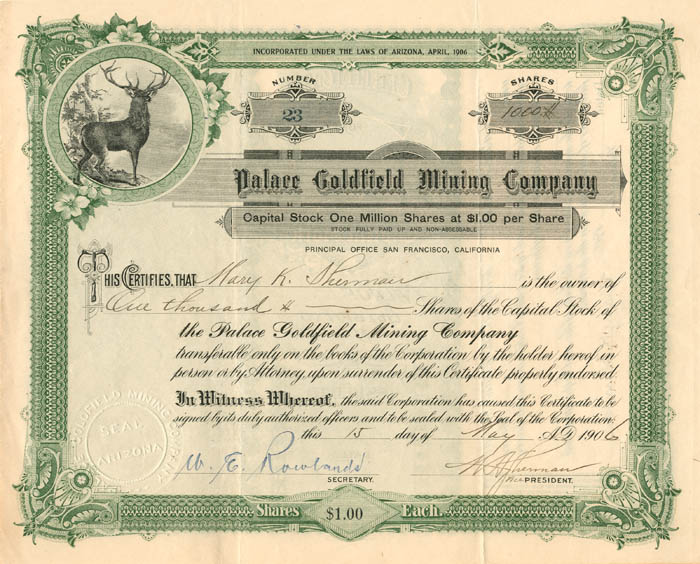 INCORPORATED UNDER THE LAWS OF ARIZONA, APRIL, 1906
NUMBER
23
SHARES
1000
Palace Goldfield Mining Company
Capital Stock One Million Shares at $1.00 per Share
STOCK FULLY PAID UP AND NON-ASSESSABLE
PRINCIPAL OFFICE SAN FRANCISCO, CALIFORNIA
THIS CERTIFIES, THAT Mary K. Sherman is the owner of
One thousand Shares of the Capital Stock of
the Palace Goldfield Mining Company
transferable only on the books of the Corporation by the holder hereof in
person or by Attorney, upon surrender of this Certificate properly endorsed.
In Witness Whereof, the said Corporation has caused this Certificate to be
signed by its duly authorized officers and to be sealed with the Seal of the Corporation,
this 15 day of May A.D. 1906
GOLDFIELD MINING COMPANY
SEAL
ARIZONA
W. E. Rowlands
SECRETARY.
Sherman
Vice PRESIDENT.
Shares $1.00 Each.